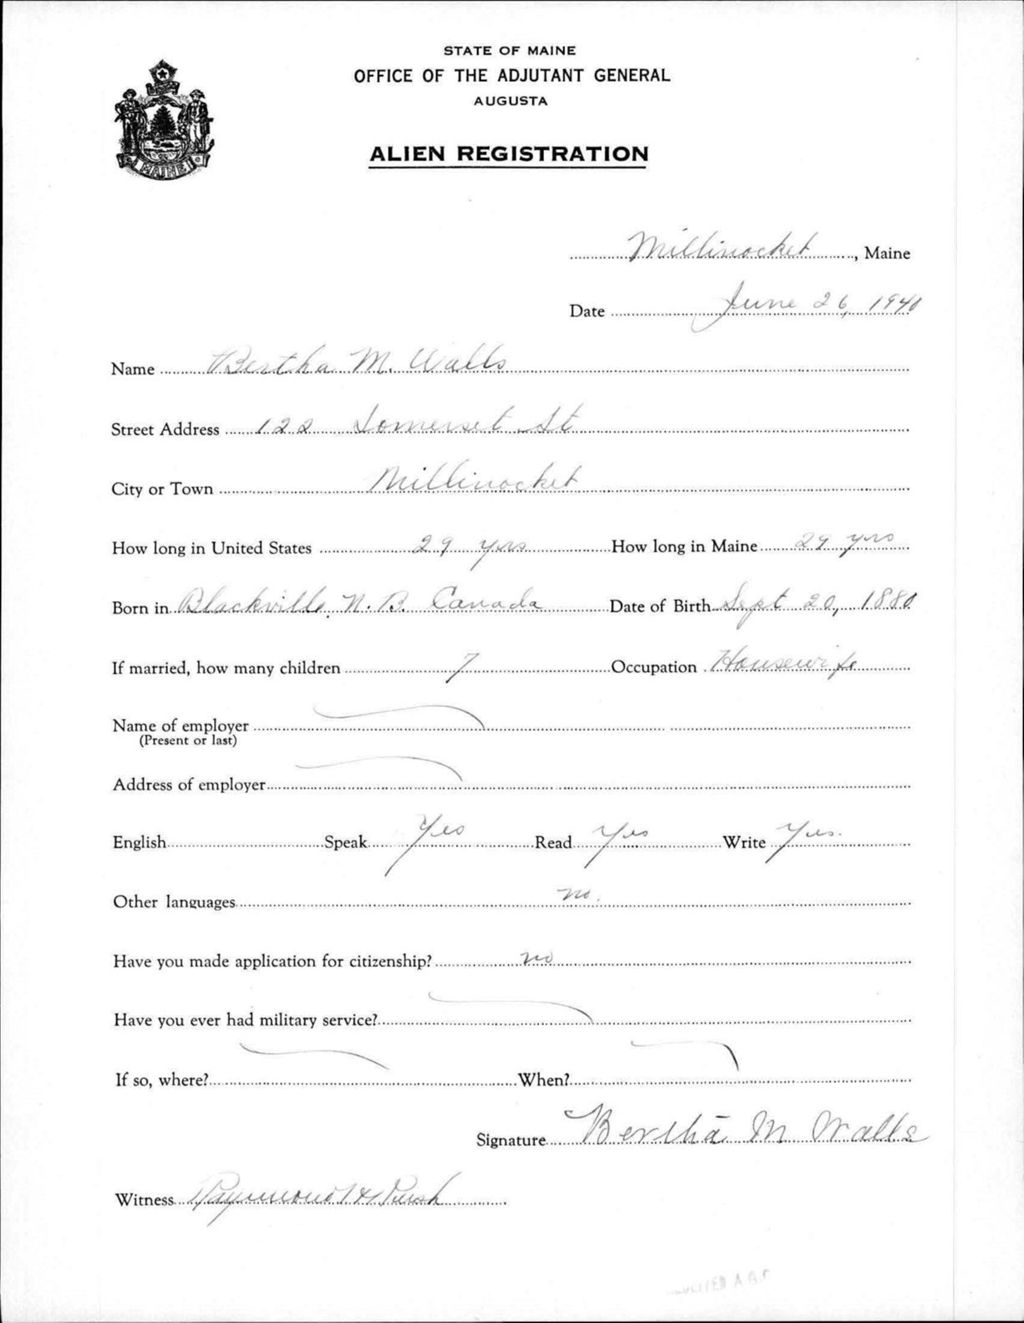 STATE OF MAINE
OFFICE OF THE ADJUTANT GENERAL
AUGUSTA
ALIEN REGISTRATION
MAINE
Millinocket, Maine
Date June 26, 1940
Name Bertha M. Walls
Street Address 122 Somerset St
City or Town Millinocket
How long in United States 29 yrs How long in Maine 29 yrs
Born in Blackville, N.B. Canada Date of Birth Sept 20, 1880
If married, how many children 7 Occupation Housewife
Name of employer
(Present or last)
Address of employer
English Speak Yes Read Yes Write Yes.
Other languages no.
Have you made application for citizenship? no
Have you ever had military service?
If so, where? When?
Signature Bertha M Walls
Witness Raymond H